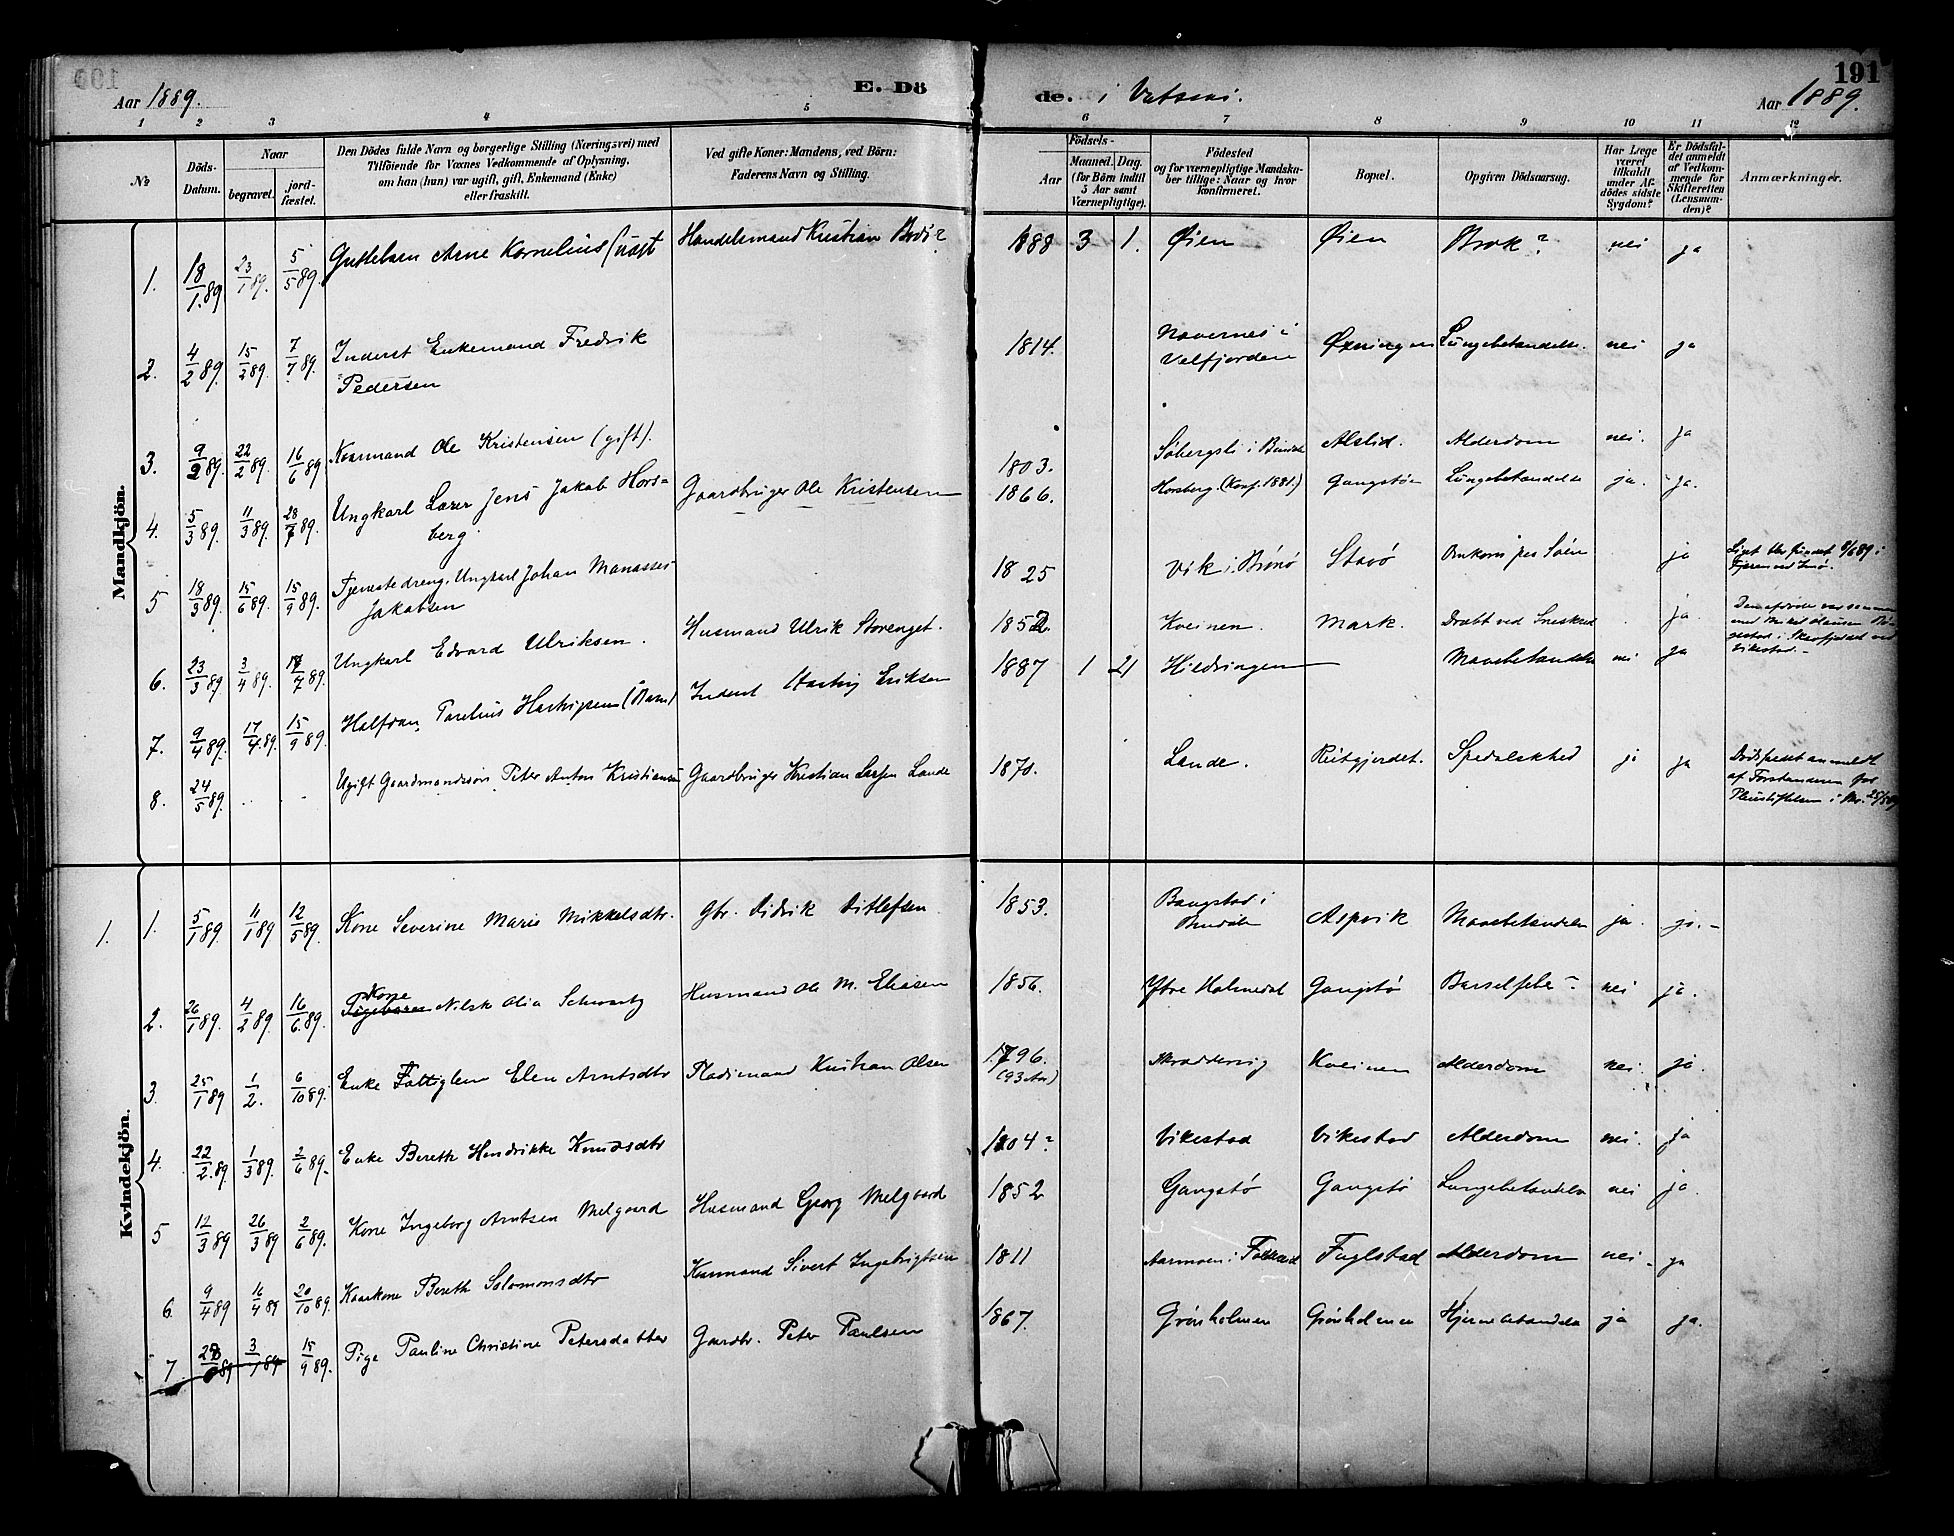 191
Aar 1889.
E. Dö
de. i
Aar 1889.
1 2 3 4 5 6 7 8 9 10 11 12
№
Döds-
Datum.
Naar
begravet.
jord-
fæstet.
Den Dödes fulde Navn og borgerlige Stilling (Næringsvei) med
Tilföiende for Voxnes Vedkommende af Oplysning,
om han (hun) var ugift, gift, Enkemand (Enke)
eller fraskilt.
Ved gifte Koner: Mandens, ved Börn:
Faderens Navn og Stilling.
Födsels-
Aar
Maaned. Dag.
(for Börn indtil
5 Aar samt
Værnepligtige).
Födested
og for værnepligtige Mandsku-
ber tillige: Naar og hvor
konfirmeret.
Bopæl.
Opgiven Dödsaarsag.
Har Læge
været
tilkaldt
under Af-
dödes sidste
Sygdom?
Er Dödsfal-
det anmeldt
af Vedkom-
mende for
Skifteretten
(Lensman-
den)?
Anmærkninger.
Mandkjön.
1. 18/1.89 23/1 89. 5/5 89. Arne Kornelius Handelsmand Kristian 1888 3 1. Øien Øien Brok? nei ja
2. 4/2 89. 15/2 89. 7/7 89. Inderst Enkemand Fredrik
Pedersen 1814. i
Velfjorden Lungebetændelse. nei ja
3. 9/2 89. 22/2 89. 16/6 89 Kaarmand Ole Kristensen (gift). 1803. Söbergsli i Bindal Alslid. Alderdom nei. ja
4. 5/3 89. 11/3 89. 28/7 89. Ungkarl Lærer Jens Jakob Hors=
berg. Gaardbruger Ole Kristensen 1866. Horsberg. (Konf. 1881.) Gangstø Lungebetændelse ja. ja.
5 18/3 89. 15/6 89. 15/9 89. Tjenestedreng, Ungkarl Johan Manasses
Jakobsen 1825 Vik i Brönö Stavö Omkom paa Söen ja Liget blev fundet 8/6 89 i
Fjæren ved
6. 23/3 89 3/4 89. 14/7 89. Ungkarl Edvard Ulriksen. Husmand Ulrik Storenget. 1852. Kveinen. Mark. Dræbt ved Sneskred ja. Den afdøde var sammen
med
i ved
Vikestad.-
7. 9/4 89. 17/4.89. 15/9 89. Halfdan Hartvigsen (Barn) Inderst Hartvig Eriksen 1887 1 21 Hildringen Mavebetændelse nei ja
8. 24/5 89. Ugift Gaardmandssøn Peter Anton Kristiansen Gaardbruger Kristian Larsen Lande 1870. Lande. Reitgjerdet. Spedalskhed ja ja Dødsfaldet anmeldt
af Forstanderen for
Pleiestiftelsen i 25/5 89
Kvindekjön.
1. 1. 5/1 89. 11/1 89 12/5 89. Kone Severine Marie Mikkelsdtr. Gbr. Didrik Ditlefsen 1853. Bangstad i
Bindalen Aspvik Mavebetændelse ja. ja.-
2. 26/1 89. 4/2 89. 16/6.89. Kone
Pigebarn Olia Schwartz Husmand Ole M. Eliasen 1856. Ytre Holmedal Gangstø Barselfeber nei ja.
3. 25/1 89 1/2. 6/10 89. Enke Fattiglem Elen Arntsdtr Pladsmand Kristian Olsen 1796.
(93 Aar) Kveinen Alderdom nei. ja.
4. 22/2.89. 1/3 89. 2/6 89. Enke Bereth Hendrikke Knudsdtr 1804? Vikestad Vikestad Alderdom nei. ja
5 12/3 89. 26/3 89 2/6 89. Kone Ingeborg Arntsen Melgaard Husmand Georg Melgaard 1852 Gangstø Gangstø Lungebetændelse nei ja.
6. 9/4 89 16/4 89 20/10 89. Kaarkone Bereth Salomonsdtr Kaarmand Sivert Ingebrigtsen 1811 Aarmoen i Foldereid Fuglstad Alderdom nei. ja
7. 3/1 89 15/9 89. Pige Pauline Christine Petersdatter Gaardbr. Peter Paulsen 1867. Grönholmen Grönholmen Hjernebetændelse ja ja.